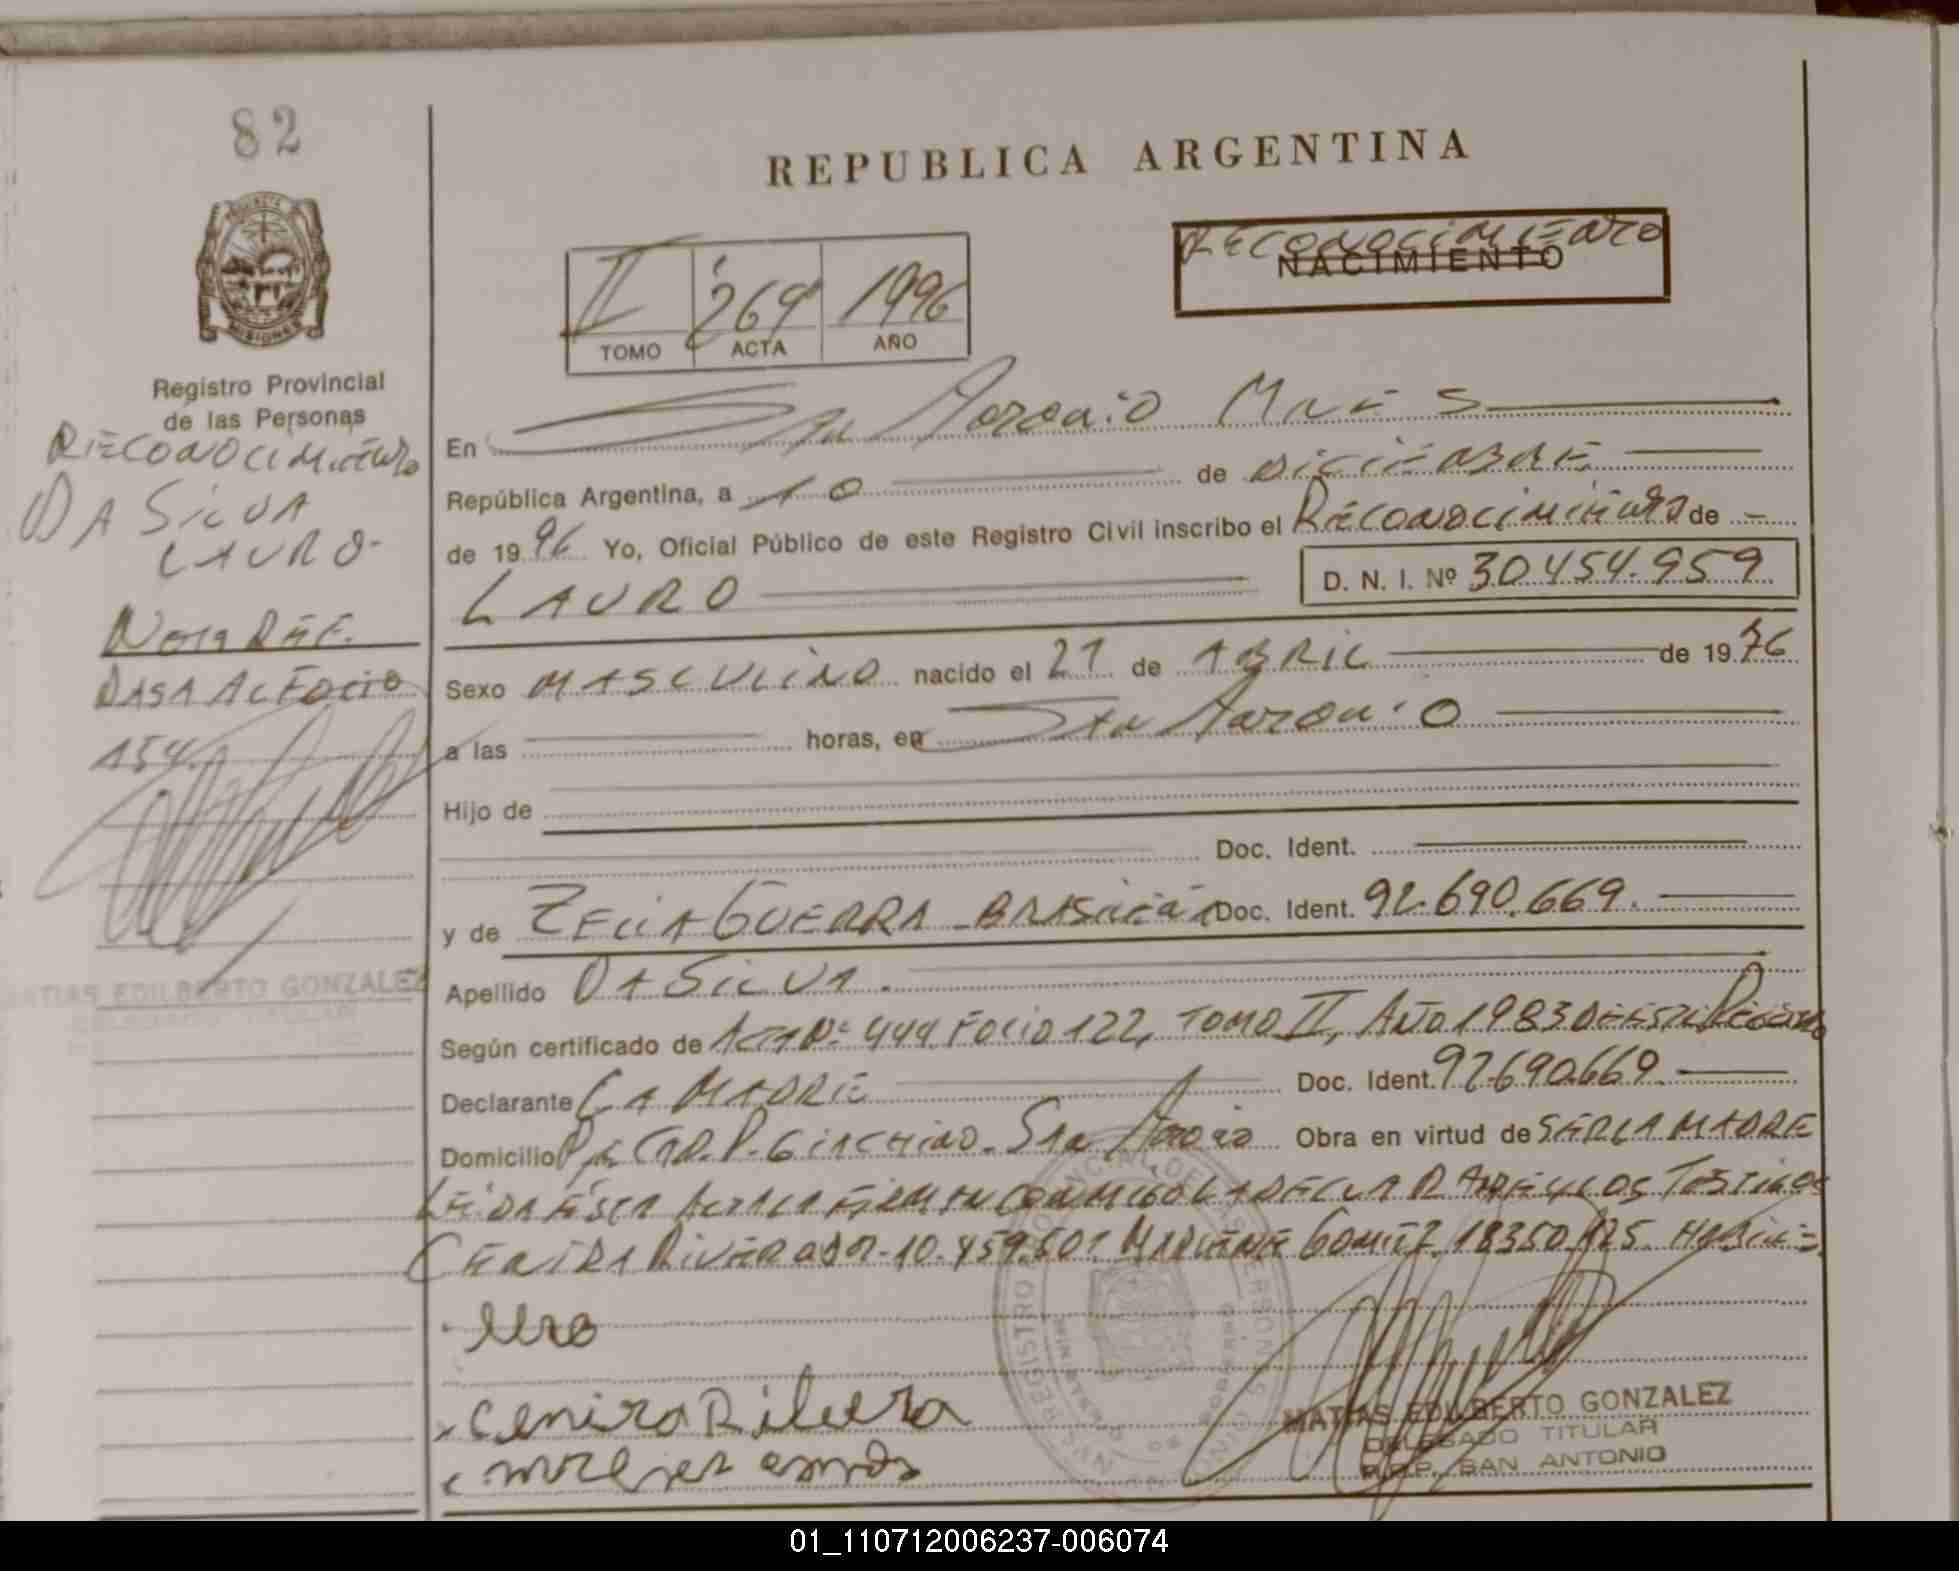 82
REPUBLICA ARGENTINA
PROVINCIA DE MISIONES
RECONOCIMIENTO
NACIMIENTO
II 269 1996
TOMO ACTA AÑO
Registro Provincial
de las Personas
RECONOCIMIENTO
DA SILVA
LAURO-
NOTA REF.
PASA AL FOLIO
154.
MATIAS EDILBERTO GONZALEZ
DELEGADO TITULAR
En San Antonio Mnes
República Argentina, a 10 de DICIEMBRE
de 1996 Yo, Oficial Público de este Registro Civil inscribo el RECONOCIMIENTO de -
LAURO D. N. I. Nº 30.454.959
Sexo MASCULINO nacido el 21 de ABRIL de 1976
a las horas, en San Antonio
Hijo de
Doc. Ident.
y de ZELIA GUERRA - BRASILEÑA Doc. Ident. 92.690.669.
Apellido DA SILVA.
Según certificado de ACTA Nº 444, FOLIO 122, TOMO II, AÑO 1983 DE ESTE REGISTRO
Declarante LA MADRE Doc. Ident. 92.690.669.
Domicilio P. San Antonio Obra en virtud de SER LA MADRE
LEIDA ESTA ACTA LA FIRMAN CONMIGO LA DECLARANTE Y LOS TESTIGOS
RIVERA 10.459.501 MARLENE GOMEZ 18350.125. HABILES
Rivera
MATIAS EDILBERTO GONZALEZ
DELEGADO TITULAR
R.P.P. SAN ANTONIO
01_110712006237-006074